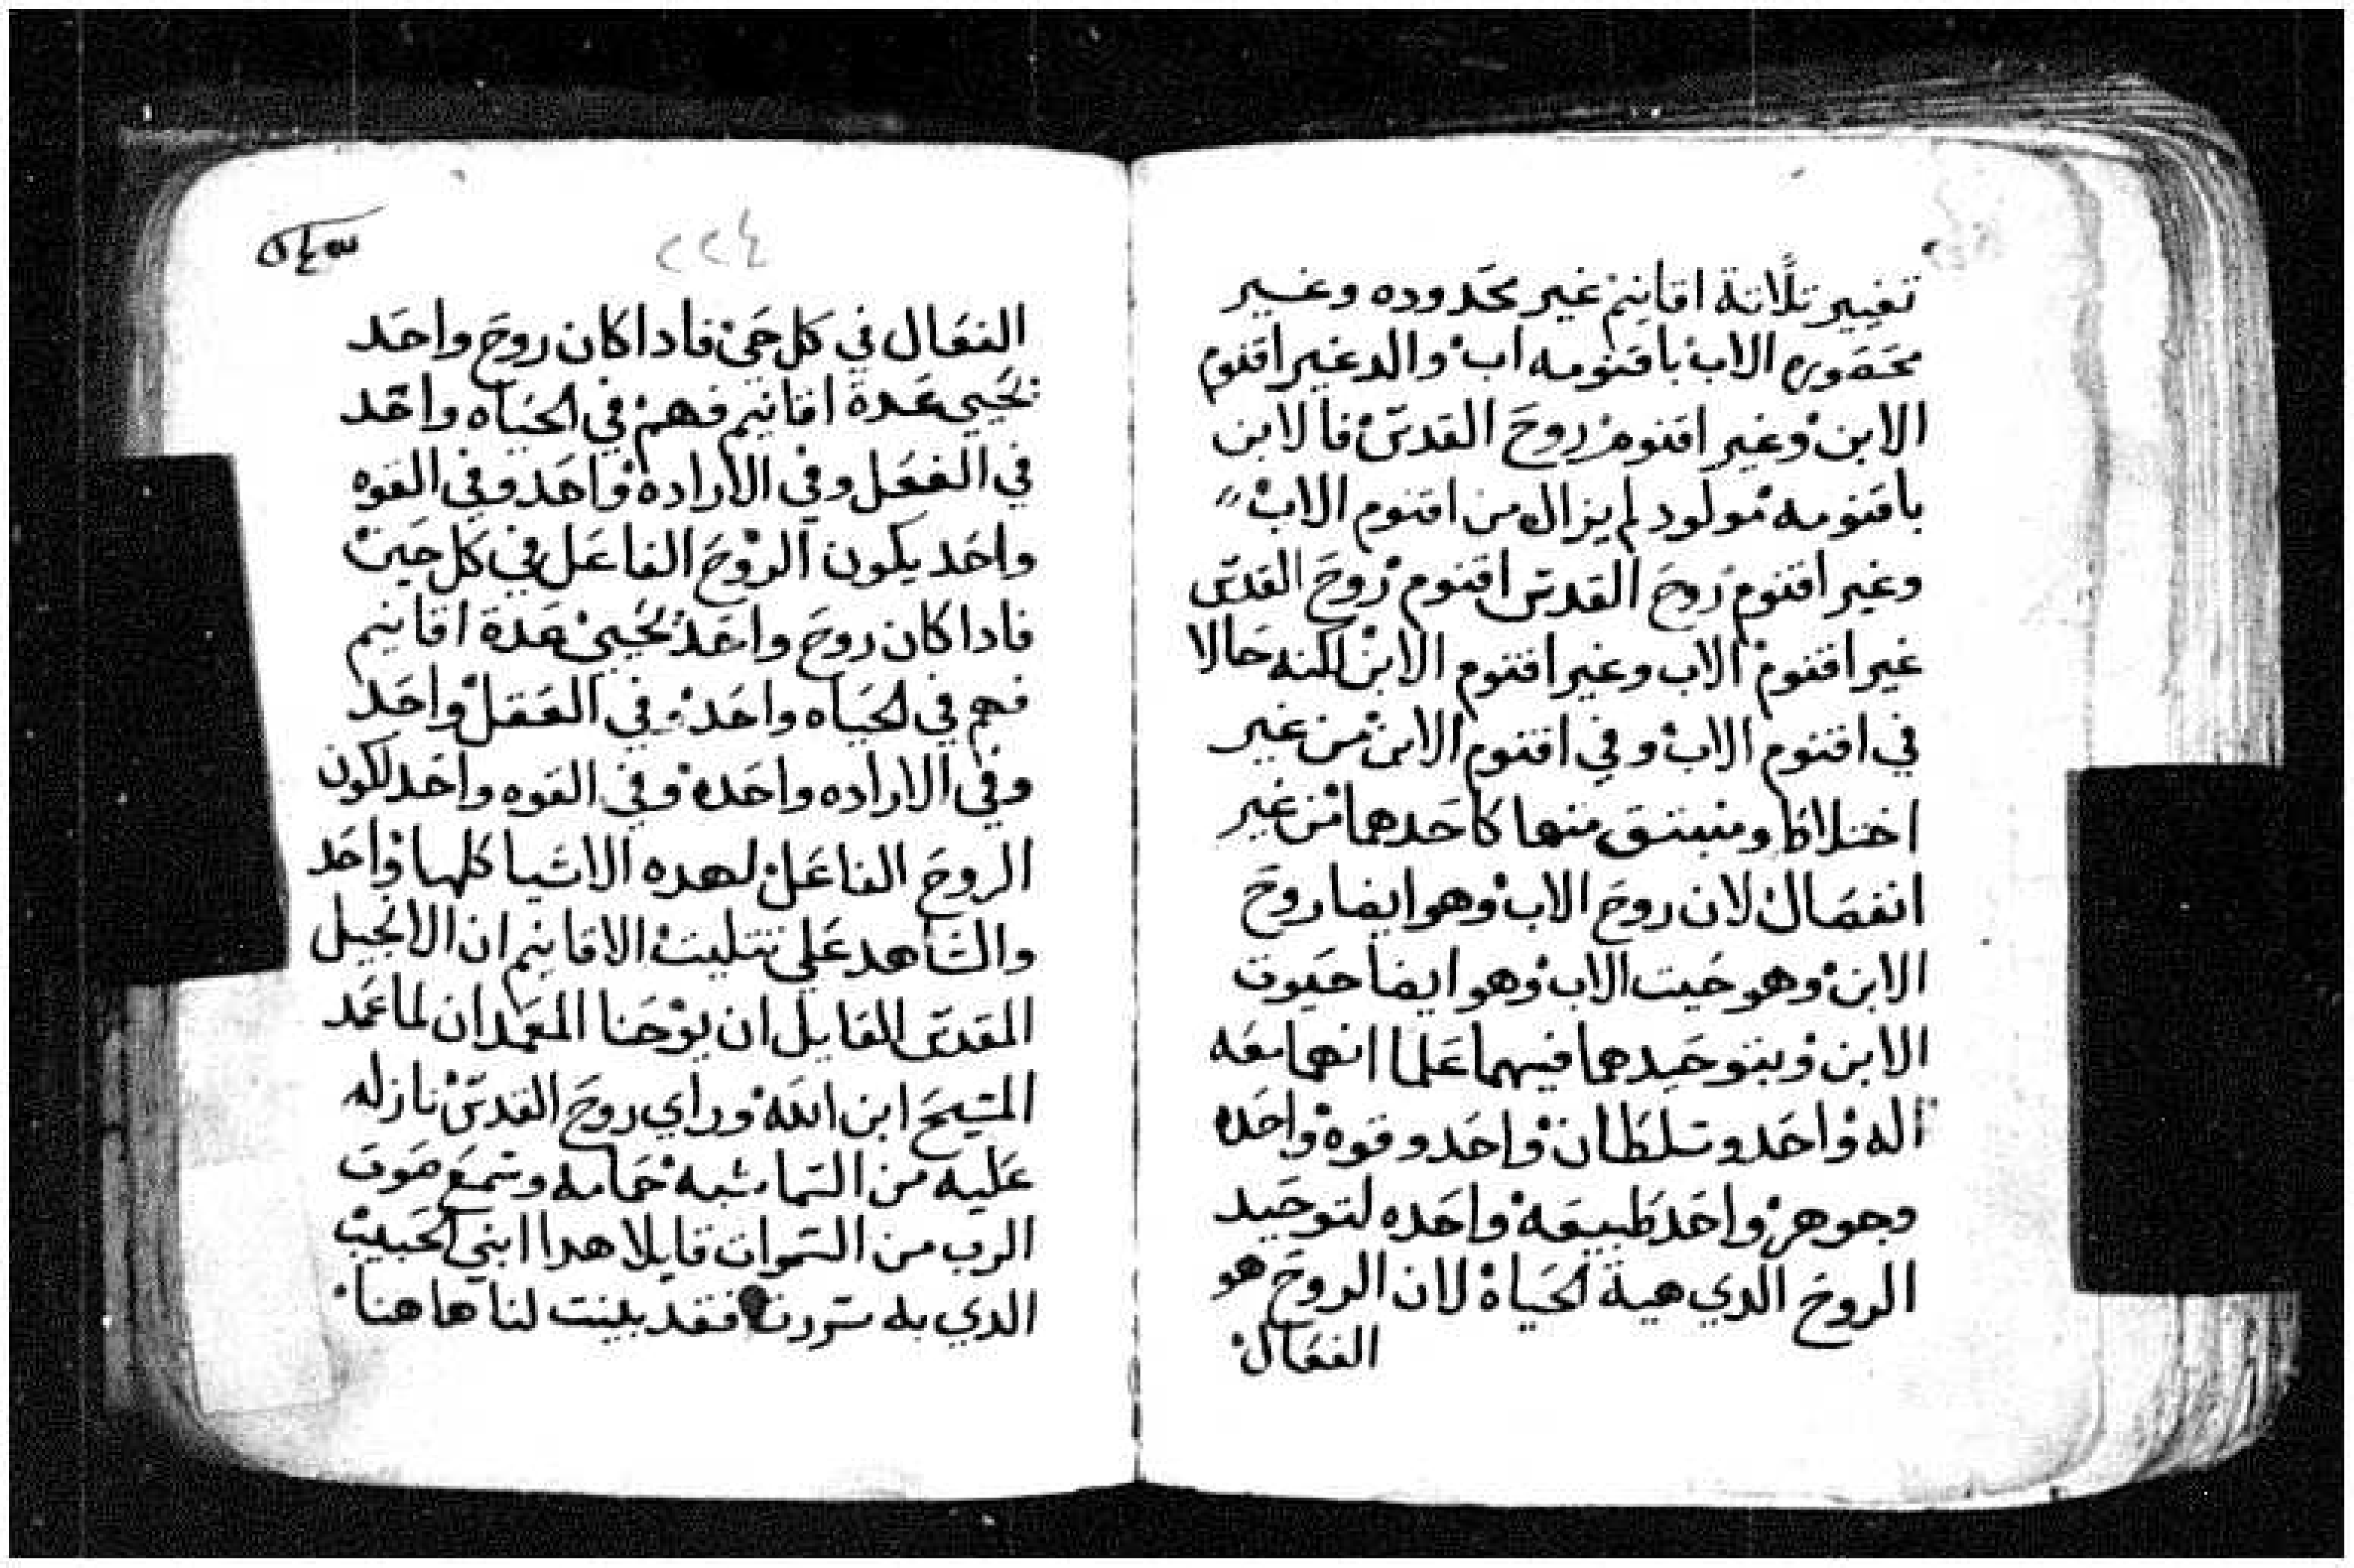 تغيير تلاتة اقانيم غير محدوده وغير
محصوره الاب باقنومه اب والد غير اقنوم
الابن وغير اقنوم روح القدس فالابن
باقنومه مولود لم يزال من اقنوم الاب
وغير اقنوم روح القدس اقنوم روح القدس
غير اقنوم الاب وغير اقنوم الابن لكنه حالا
في اقنوم الاب وفي اقنوم الابن من غير
اختلاط ومنبتق منها كاحدهما من غير
انفصال لان روح الاب وهو ايضا روح
الابن وهو حيت الاب وهو ايضا حيوت
الابن وبتوحيدهما فيهما علما انهما معه
اله واحد وسلطان واحد وقوه واحده
وجوهر واحد طبيعه واحده لتوحيد
الروح الدي هية الحياة لان الروح هو
الفعال
٢٢٤
الفعال في كل حي فادا كان روح واحد
تحيي عدة اقانيم فهم في الحياه واحد
في الفعل وفي الاراده واحد وفي القوه
واحد يكون الروح الفاعل في كل حين
فادا كان روح واحد تحيي عدة اقانيم
فهم في الحياه واحد وفي العقل واحد
وفي الاراده واحده وفي القوه واحد لكون
الروح الفاعل لهده الاشيا كلها واحد
والشاهد علي تتليت الاقانيم ان الانجيل
المقدس القايل ان يوحنا المعمدان لما عمد
المسيح ابن الله وراي روح القدس نازله
عليه من السما شبه حمامه وسمع صوت
الرب من السموات قايلا هدا ابني الحبيب
الدي به سررت فقد بينت لنا هاهنا